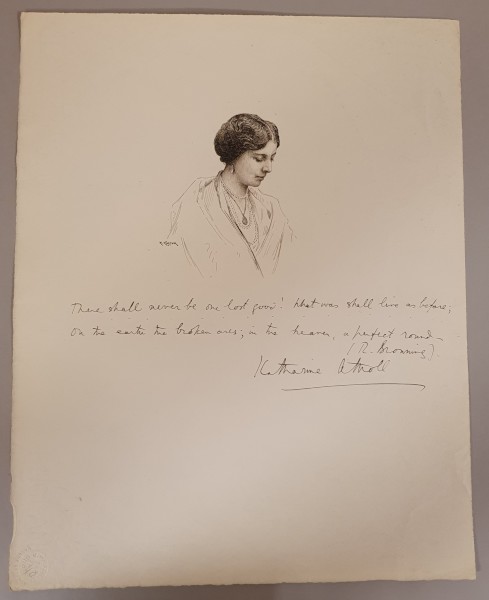 There shall never be one lost good! What was shall live as before;
On the earth the broken arcs; in the heaven, a perfect round
(R. Browning).
Katharine Atholl